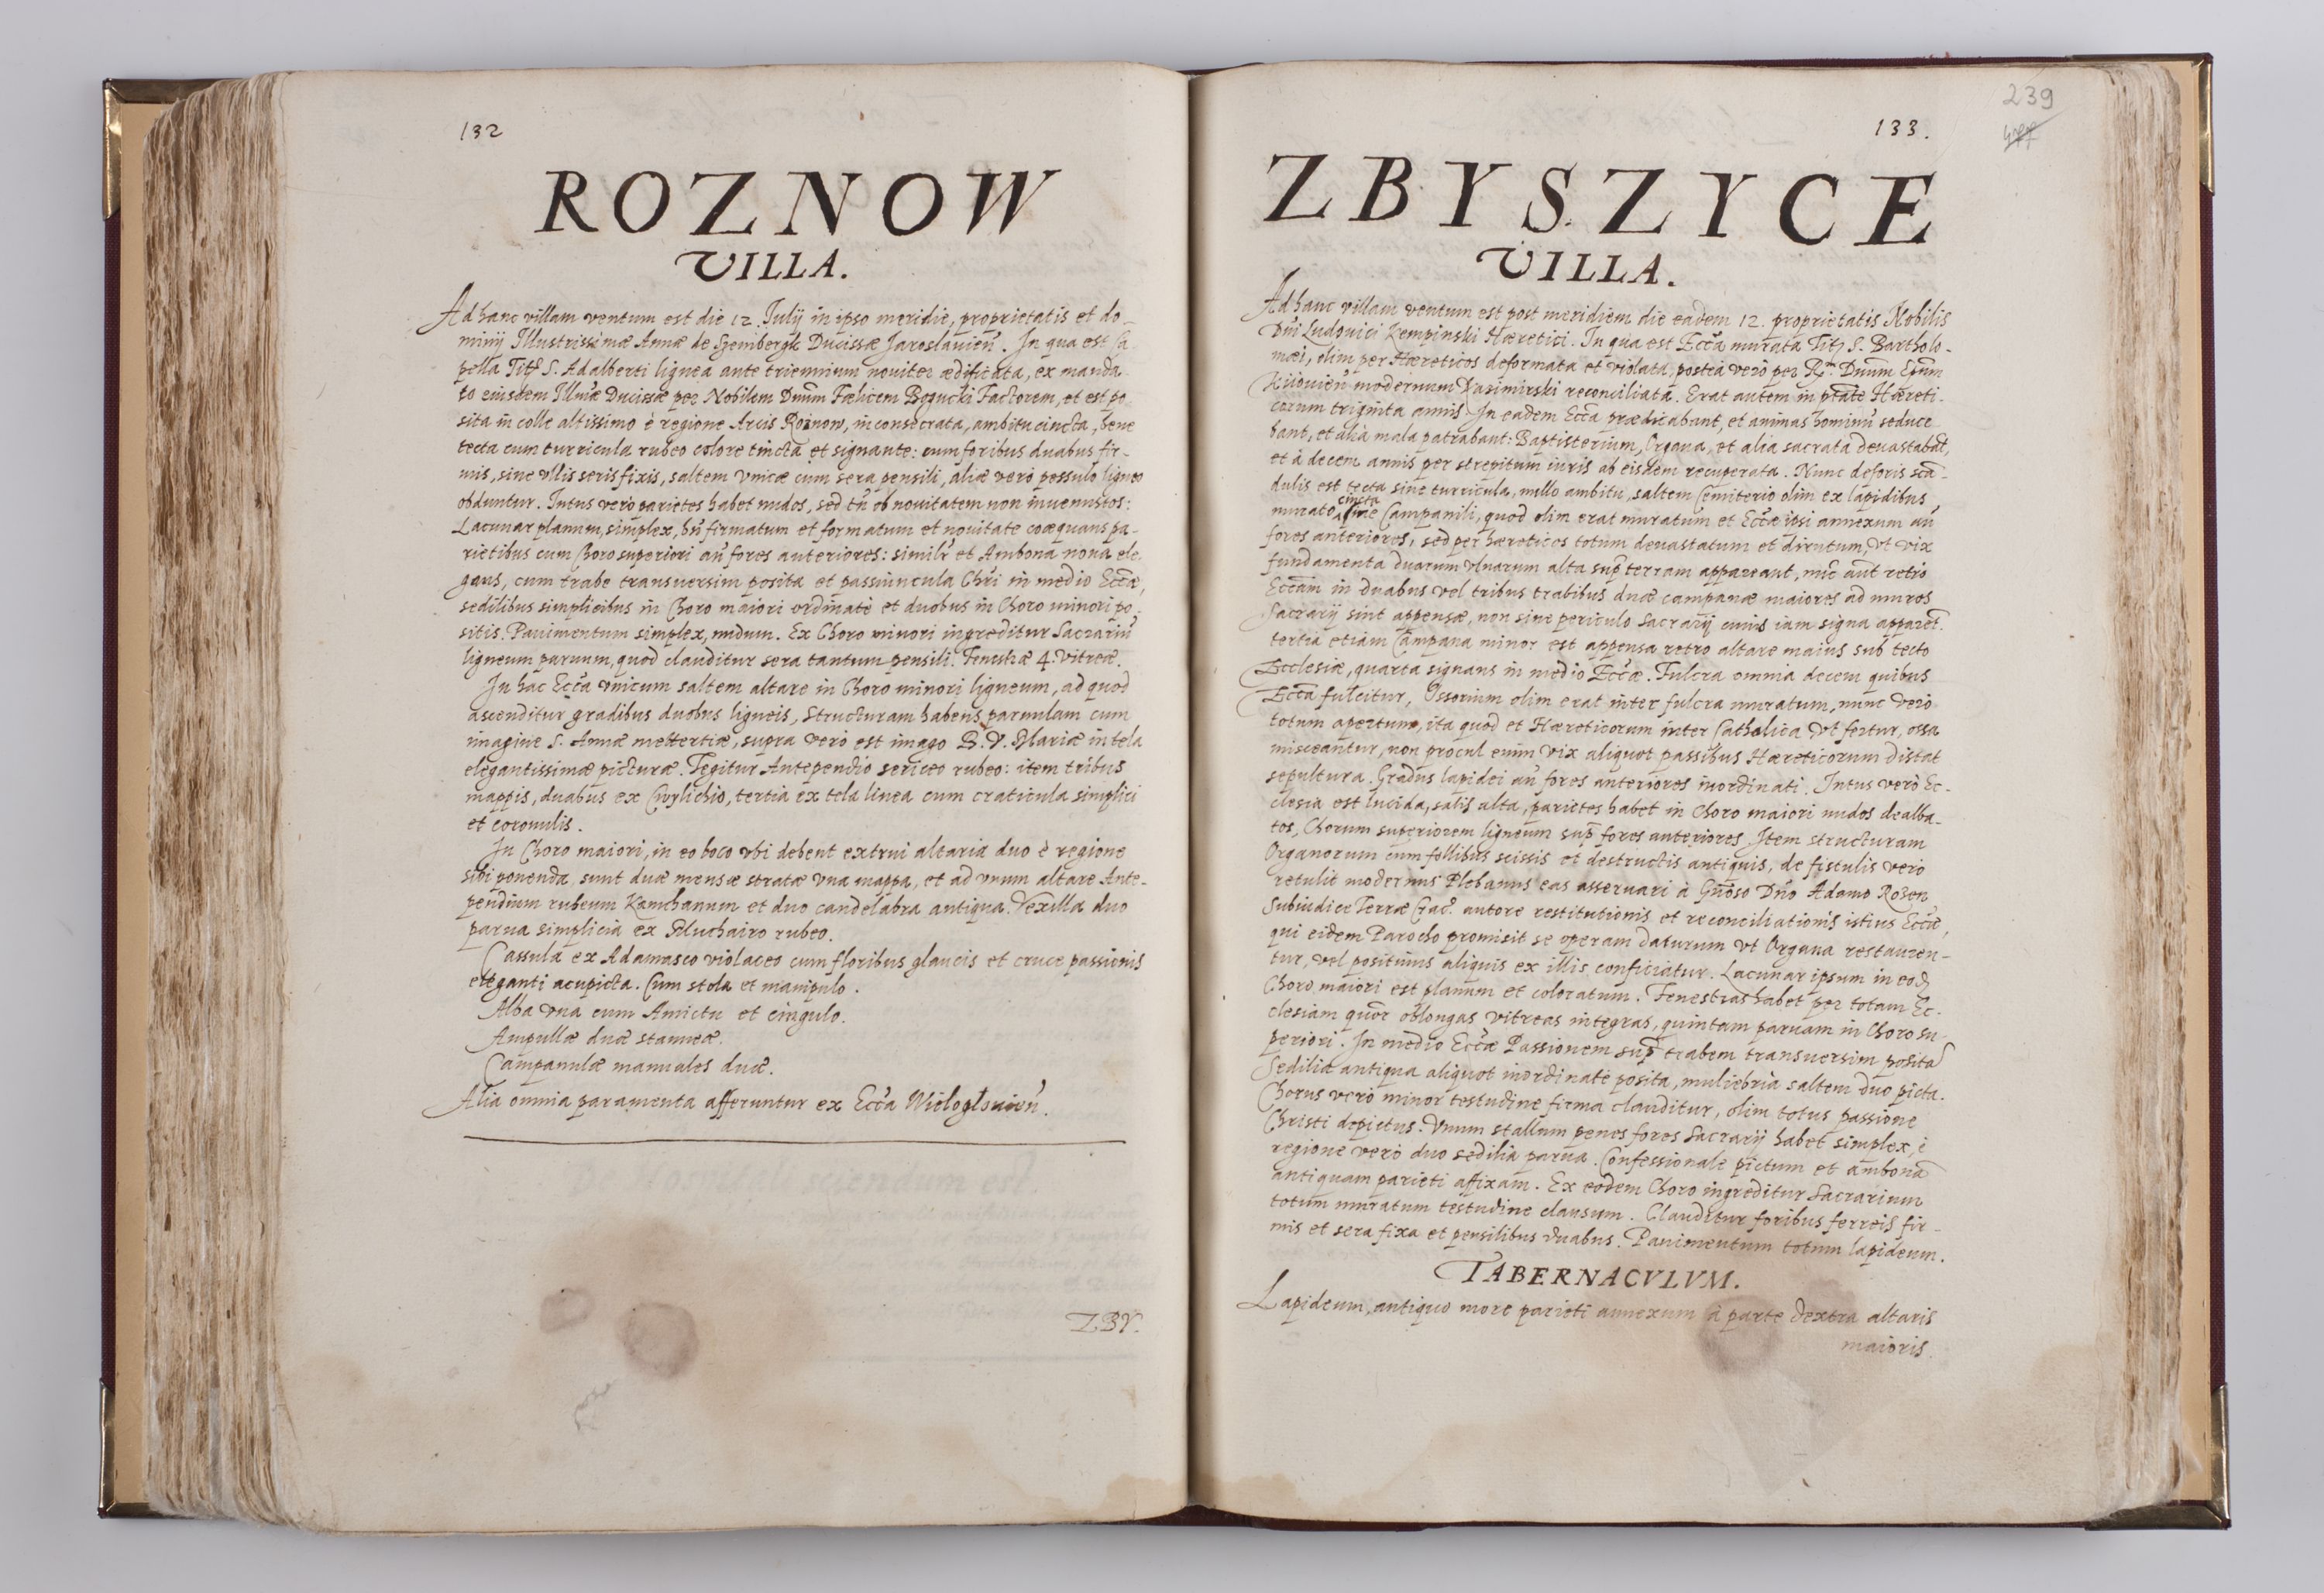 132
ROZNOW
VILLA.
Ad hanc villam ventum est die 12. Iulij in ipso meridie, proprietatis et do-
minij Illustrissimæ Annæ de Sztembergk Ducissæ Jaroslauien̄. In qua est Ca
pella Tit S. Adalberti lignea ante triennium nouiter ædificata, ex manda
to eiusdem Illmæ Ducissæ per Nobilem Dnūm Fælicem Bogucki Factorem, et est po
sita in colle altissimo è regione Arcis Roznow, inconsecrata, ambitu cincta, bene
tecta cum turricula rubeo colore tincta et signante: cum foribus duabus fir-
mis, sine vllis seris fixis, saltem vnicæ cum sera pensili, aliæ verò pessulo ligneo
obduntur. Intus verò parietes habet nudos, sed tn̄ ob nouitatem non inuenustos:
Lacunar planum, simplex, bn̄ firmatum et formatum et nouitate coæquans pa-
rietibus cum Choro superiori an̄ fores anteriores: similr̄ et Ambona noua ele
gans, cum trabe transuersim posita et passiuncula Chr̄i in medio Eccæ,
sedilibus simplicibus in Choro maiori ordinatè et duobus in Choro minori po-
sitis. Pauimentum simplex, nudum. Ex Choro minori ingreditur Sacrariū
ligneum paruum, quod clauditur sera tantum pensili. Fenestræ 4. vitreæ.
In hac Ecca vnicum saltem altare in Choro minori ligneum, ad quod
ascenditur gradibus duobus ligneis, Structuram habens paruulam cum
imagine S. Annæ mettertiæ, supra verò est imago B. V. Mariæ in tela
elegantissimæ picturæ. Tegitur Antependio sericeo rubeo: item tribus
mappis, duabus ex Cwylichio, tertia ex tela linea cum craticula simplici
et coronulis.
In Choro maiori, in eo loco vbi debent extrui altaria duo è regione
sibi ponenda, sunt duæ mensæ stratæ vna mappa, et ad vnum altare Ante-
pendium rubeum Kamchanum et duo candelabra antiqua. Vexilla duo
parua simplicia ex Muchairo rubeo.
Cassula ex Adamasco violaceo cum floribus glaucis et cruce passionis
eleganti acupicta. Cum stola et manipulo.
Alba vna cum Amictu et cingulo.
Ampullæ duæ stanneæ.
Campanulæ manuales duæ.
Alia omnia paramenta afferuntur ex Ecca Wielogłouien̄.
ZBY.
239
133.
ZBYSZYCE
VILLA.
Ad hanc villam ventum est post meridiem die eadem 12. proprietatis Nobilis
Dn̄i Ludouici Kempinski Hæretici. In qua est Ecca murata Tit S. Bartholo-
mæi, olim per Hæreticos deformata et violata, postea verò per Rm. Dnūm Epūm
Kiiouien̄ modernum reconciliata. Erat autem in ptāte Hæreti-
corum triginta annis. In eadem Ecca prædicabant, et animas hominū seduce
bant, et alia mala patrabant: Baptisterium, Organa, et alia sacrata deuastabāt,
et à decem annis per strepitum iuris ab eisdem recuperata. Nunc deforis scā-
dulis est tecta sine turricula, nullo ambitu, saltem Cemiterio olim ex lapidibus
cincta
murato, sine Campanili, quod olim erat muratum et Eccæ ipsi annexum an̄
fores anteriores, sed per hæreticos totum deuastatum et dirutum, vt vix
fundamenta duarum vlnarum alta sup̄ terram appareant, nūc aūt retro
Eccam in duabus vel tribus trabibus duæ campanæ maiores ad muros
Sacrarij sint appensæ, non sine periculo Sacrarij cuius iam signa apparēt.
tertia etiam Campana minor est appensa retro altare maius sub tecto
Ecclesiæ, quarta signans in medio Eccæ. Fulcra omnia decem quibus
Ecca fulcitur, Ossorium olim erat inter fulcra muratum, nunc verò
totum apertum, ita quod et Hæreticorum inter Catholica vt fertur, ossa
misceantur, non procul enim vix aliquot passibus Hæreticorum distat
sepultura. Gradus lapidei an̄ fores anteriores inordinati. Intus verò Ec-
clesia est lucida, satis alta, parietes habet in Choro maiori nudos dealba-
tos, Chorum superiorem ligneum sup̄ fores anteriores. Item structuram
Organorum cum follibus scissis et destructis antiquis, de fistulis verò
retulit modernus Plebanus eas asseruari à Gn̄oso Dn̄o Adamo Rozen
Subiudice Terræ Crac. autore restitutionis et reconciliationis istius Eccæ,
qui eidem Parocho promisit se operam daturum vt Organa restauren-
tur, vel positiuus aliquis ex illis conficiatur. Lacunar ipsum in eod
Choro maiori est planum et coloratum. Fenestras habet per totam Ec-
clesiam quōr oblongas vitreas integras, quintam paruam in Choro su-
periori. In medio Eccæ Passionem sup̄ trabem transuersim positā
Sedilia antiqua aliquot inordinatè posita, muliebria saltem duo picta.
Chorus verò minor testudine firma clauditur, olim totus passione
Christi depictus. Vnum stallum penes fores Sacrarij habet simplex, è
regione verò duo sedilia parua. Confessionale pictum et ambonā
antiquam parieti affixam. Ex eodem Choro ingreditur Sacrarium
totum muratum testudine clausum. Clauditur foribus ferreis fir-
mis et sera fixa et pensilibus duabus. Pauimentum totum lapideum.
TABERNACVLVM.
Lapideum, antiquo more parieti annexum à parte dextra altaris
maioris.